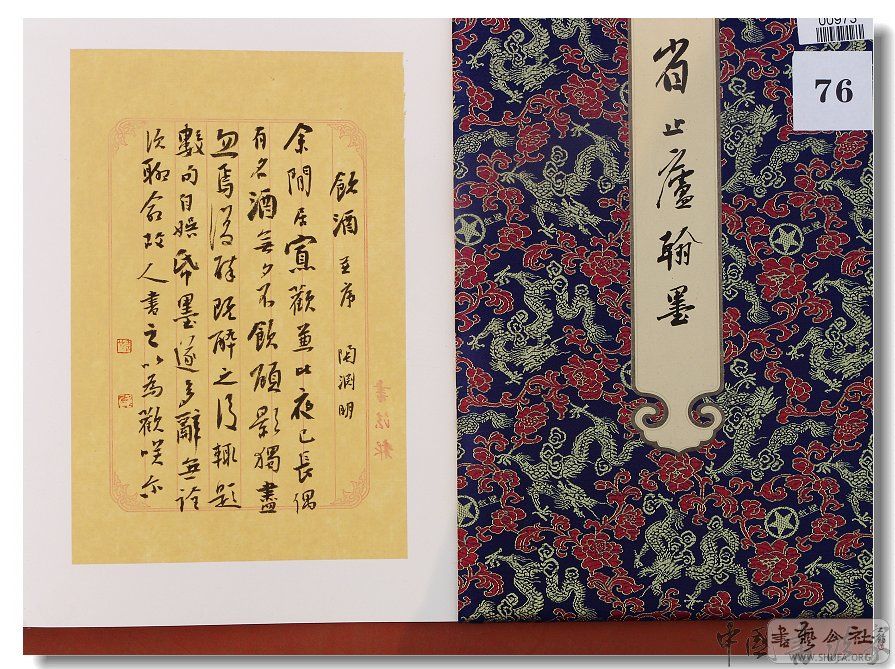 飲酒 並序 陶淵明
余閒居寡歡兼比夜已長偶
有名酒無夕不飲顧影獨盡
忽焉復醉既醉之後輒題
數句自娛帋墨遂多辭無詮
次聊命故人書之以為歡咲尔
書法報
省止廬翰墨
00973
76
中國書藝公社
WWW.SHUFA.ORG